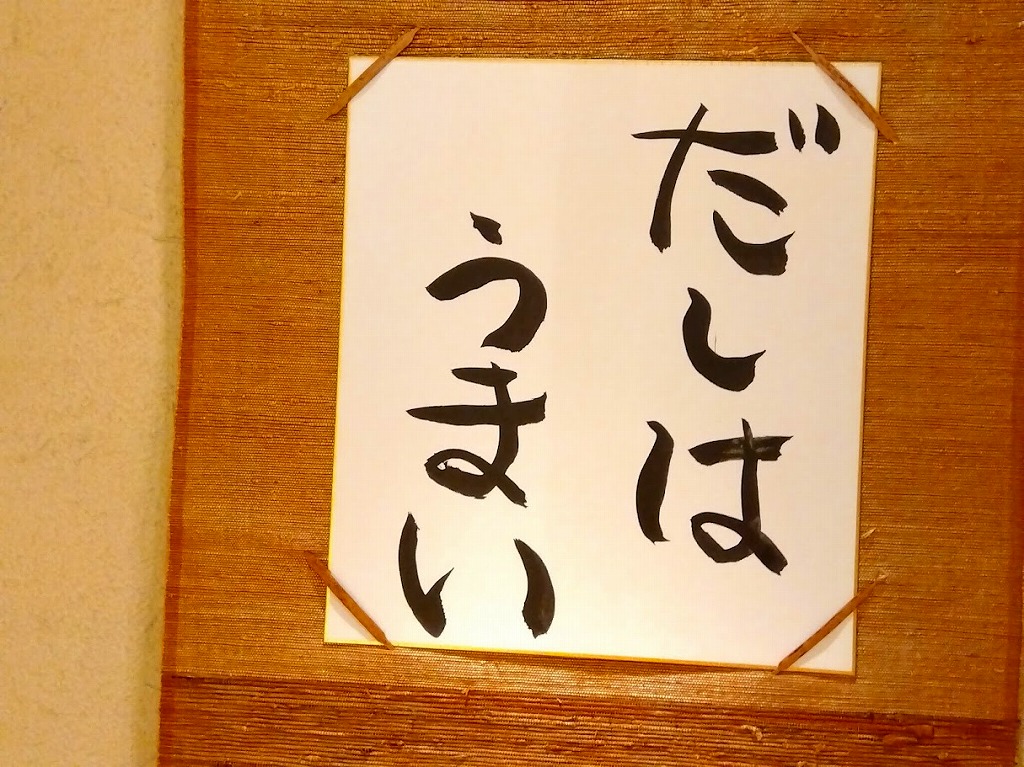 だしは
うまい